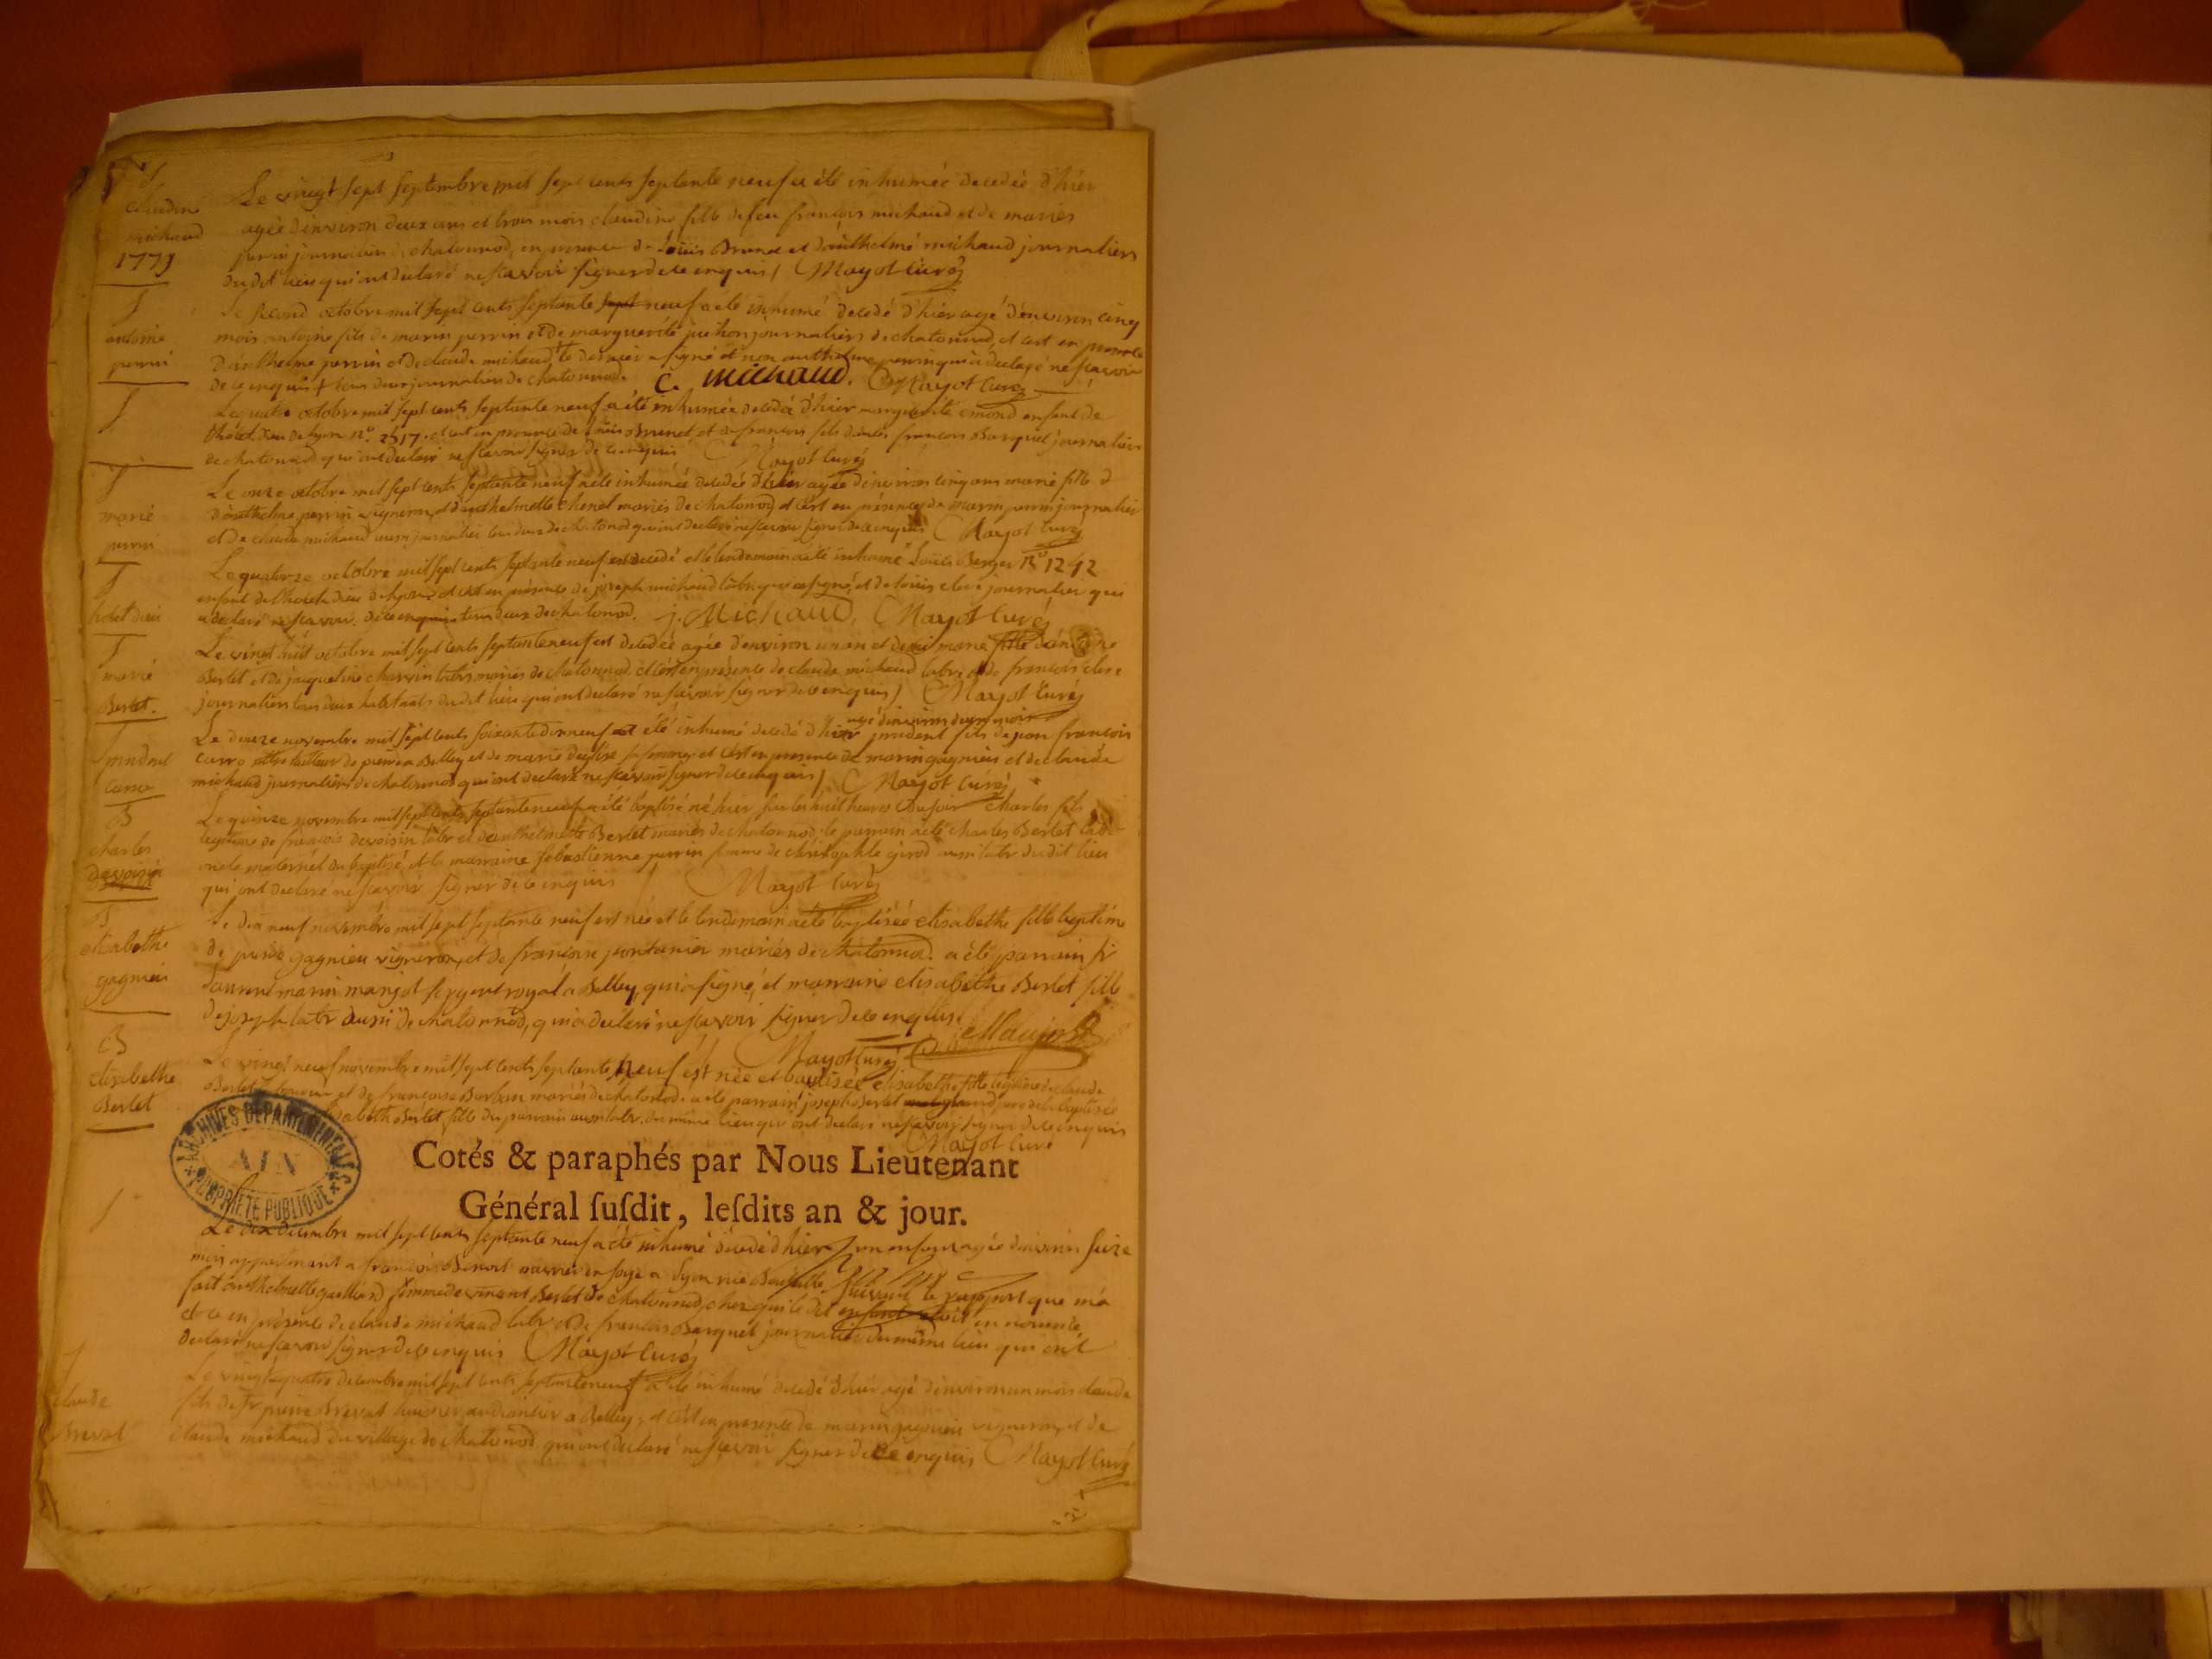 S
claudine
michaud
1779
Le vingt sept septembre mil sept cents septante neuf a été inhumée decedée d'hier
agée d'environ deux ans et trois mois claudine fille de feu françois michaud et de mariés
perrin journaliers chatonnod, en presence de Louis Brunet et d'anthelme michaud journaliers
dudit lieu qui ont declaré ne scavoir signer de ce enquis / Mayot Curé
S
antoine
perrin
Le second octobre mil sept cents septante sept neuf a été inhumé decedé d'hier agé d'environ cinq
mois antoine fils de marin perrin et de marguerite juihon journaliers de chatonnod, et c'est en presence
d'anthelme perrin et de claude michaud le dernier a signé et non anthelme perrin qui a declaré ne scavoir
de ce enquis + tous deux journaliers de chatonnod. C. Michaud. Mayot Curé
S
Le quatre octobre mil sept cents septante neuf a été inhumée decedée d'hier marguerite emond enfant de
l'hotel dieu de lyon n.° 2517. et c'est en presence de Louis Brunet et de françois fils d'autre françois Barquet journaliers
de chatonnod qui ont declaré ne scavoir signer de ce enquis Mayot Curé
S
marie
perrin
Le onze octobre mil sept cents septante neuf a été inhumée decedée d'hier agée d'environ cinq ans marie fille d
d'anthelme perrin vigneron, et d'anthelmette chenel mariés de chatonnod et c'est en présence de marin perrin journalier
et de claude michaud aussi journalier tous deux de chatonod qui ont declaré ne scavoir signer de ce enquis Mayot Curé
S
hotel dieu
Le quatorze octobre mil sept cents septante neuf est decedé et le lendemain a été inhumé Louis Berger N.° 1242
enfant de l'hotel dieu de lyon et c'est en présence de joseph michaud labr. qui a signé, et de louis clerc journalier qui
a declaré ne scavoir. de ce enquis tous deux de chatonod. j. Michaud. Mayot Curé
S
marie
Berlet.
Le vingt huit octobre mil sept cents septante neuf est decedée agée d'environ un an et demi marie fille d'antoine
Berlet et de jacqueline charvin labrs. mariés de chatonnod, et c'est en présence de claude michaud labr. et de françois clerc
journaliers tous deux habitants dudit lieu qui ont declaré ne scavoir signer de ce enquis / Mayot Curé
S
prudent
carro
agé d'environ deux mois
Le douze novembre mil sept cents soixante dix neuf a été inhumé decedé d'hier prudent fils de jean françois
carro mtre tailleur de pierre a Belley et de marie deglise sa femme, et c'est en presence de marin gagnieu et de claude
michaud journaliers de chatonnod qui ont declaré ne scavoir signer de ce enquis / Mayot Curé
B
charles
devoisin
Le quinze novembre mil sept cents septante neuf a été baptisé né hier sur les huit heures du soir charles fils
legitime de françois devoisin labr et d'anthelmette Berlet mariés de chatonnod, le parrain a été charles Berlet labr
oncle maternel du baptisé et la marraine sebastienne perrin femme de christophle girod aussi labr dudit lieu
qui ont declaré ne scavoir signer de ce enquis / Mayot Curé
B
elisabethe
gagnieu
Le dix neuf novembre mil sept septante neuf est née et le lendemain a été baptisée elisabethe fille legitime
de pierre gagnieu vigneron, et de françoise pontanier mariés de chatonnod. a été parrain sr
Laurent marin manjot sergent royal a Belley, qui a signé, et marraine elisabethe Berlet fille
de joseph labr aussi de chatonnod, qui a declaré ne scavoir signer de ce enquis.
Mayot Curé
B
elisabethe
Berlet
Le vingt neuf novembre mil sept cents septante neuf est née et baptisée elisabethe fille legitime de claude
Berlet et de françoise Burban mariés de chatonod. a été parrain joseph Berlet grand pere de la baptisée
elisabeth Berlet fille du parrain aussi labr. du même lieu qui ont declaré ne scavoir signer de ce enquis
Mayot Curé
ARCHIVES DÉPARTEMENTALES
AIN
PROPRIÉTÉ PUBLIQUE
Cotés & paraphés par Nous Lieutenant
Général ſuſdit, leſdits an & jour.
S
Le dix decembre mil sept cents septante neuf a été inhumé decedé d'hier un enfant agé d'environ seize
mois appartenant a françois Benoit ouvrier en soye a lyon rue suivant le rapport que m'a
fait anthelmette femme de vincent Berlet de chatonnod, chez qui le dit enfant etoit en nourrice,
et ce en présence de claude michaud labr et de françois Barquet journalier du même lieu qui ont
declaré ne scavoir signer de ce enquis Mayot Curé
S
claude
Brevat
Le vingt quatre decembre mil sept cents septante neuf a été inhumé decedé d'hier agé d'environ un mois claude
fils de sr pierre Brevat huissier audiancier a Belley, et c'est en presence de marin gagnieu vigneron, et de
claude michaud du village de chatonod qui ont declaré ne scavoir signer de ce enquis Mayot Curé